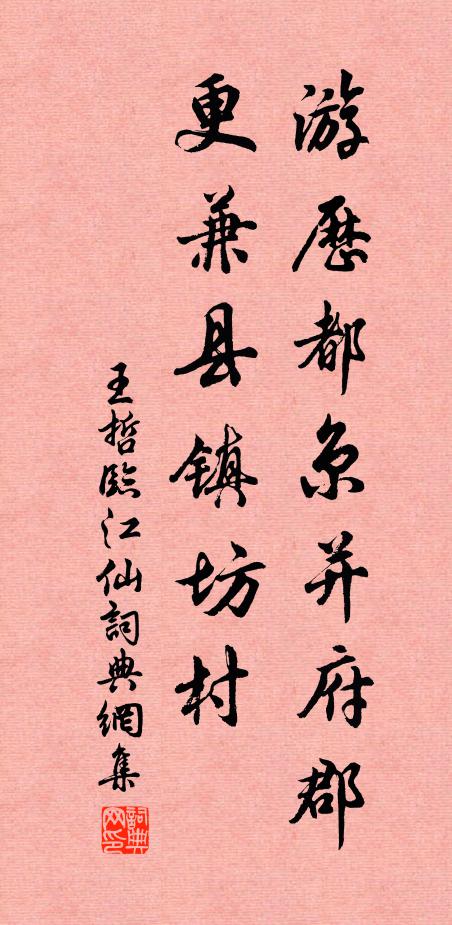 游歷都京并府郡
更兼县镇坊村
王哲臨江仙詞典網集
詞典网印